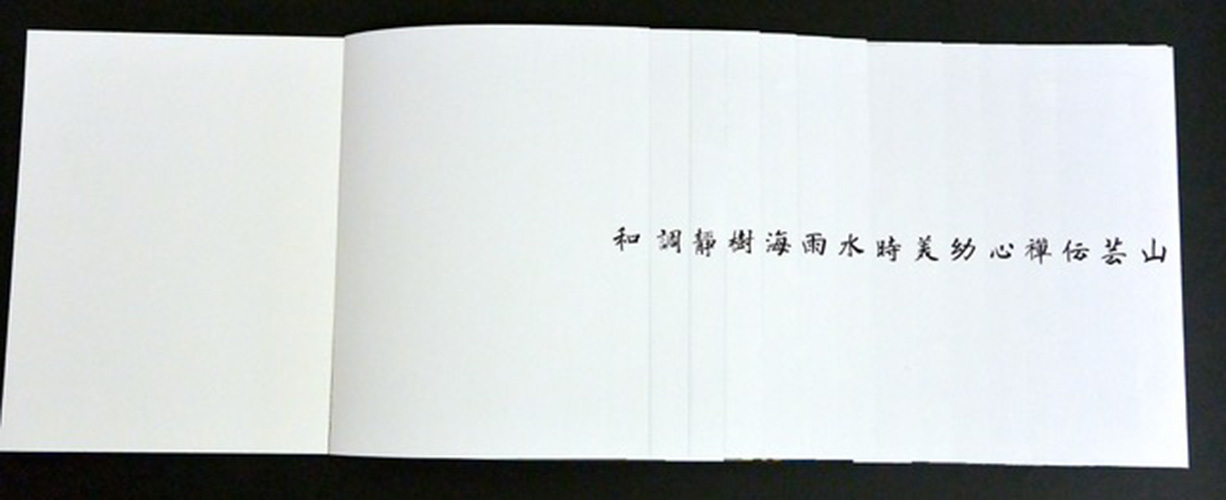 和調靜樹海雨水時美幼心禅伝芸山